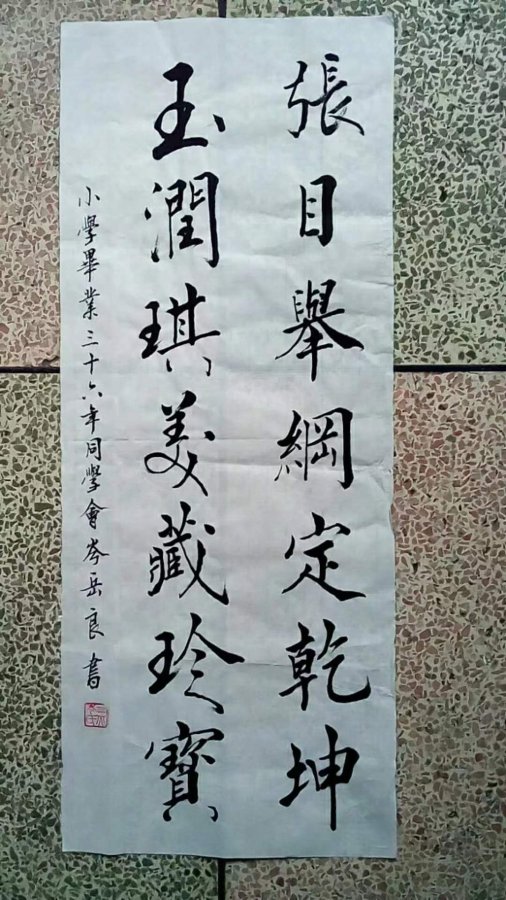 張目舉綱定乾坤
玉潤琪美藏珍寶
小學畢業三十六年同學會岑岳良書